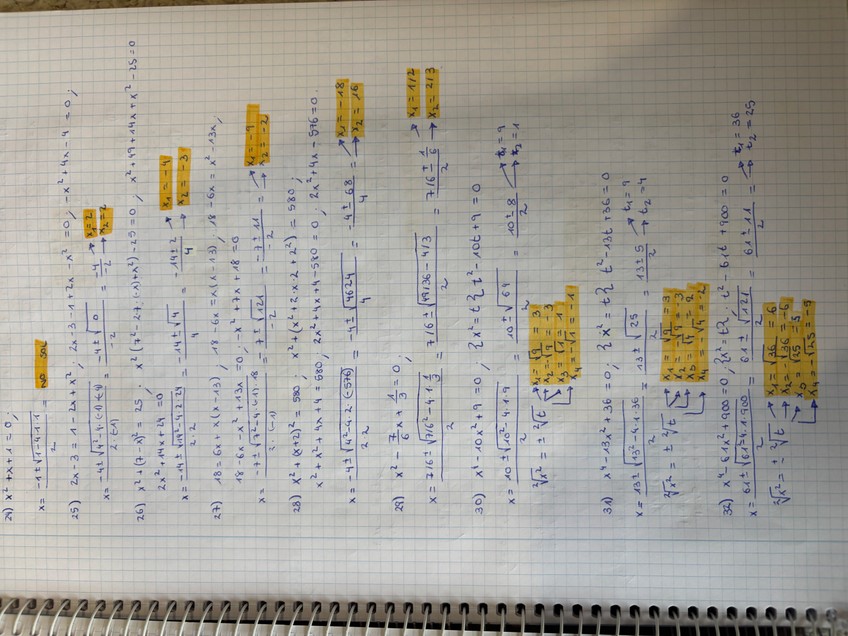 24) x² + x + 1 = 0;
x = -1 ± √1-4·1·1 / 2 = no sol
25) 2x - 3 = 1 - 2x + x²; 2x - 3 - 1 + 2x - x² = 0; -x² + 4x - 4 = 0;
x = -4 ± √4²-4·(-1)·(-4) / 2·(-1) = -4 ± √0 / -2 = -4 / -2 → x₁ = 2 → x₂ = 2
26) x² + (7-x)² = 25; x² (7² - 2·7·(-x) + x²) - 25 = 0; x² + 49 + 14x + x² - 25 = 0
2x² + 14x + 24 = 0
x = -14 ± √14²-4·2·24 / 2·2 = -14 √4 / 4 = -14 ± 2 / 4 → x₁ = -4 → x₂ = -3
27) 18 = 6x + x(x-13); 18 - 6x = x(x-13); 18 - 6x = x² - 13x;
18 - 6x - x² + 13x = 0; -x² + 7x + 18 = 0
x = -7 ± √7²-4·(-1)·18 / 2·(-1) = 7 ± √121 / -2 = -7 ± 11 / -2 → x₁ = -9 → x₂ = -2
28) x² + (x+2)² = 580; x² + (x² + 2·x·2 + 2²) = 580;
x² + x² + 4x + 4 = 580; 2x² + 4x + 4 - 580 = 0; 2x² + 4x - 576 = 0.
x = -4 ± √4²-4·2·(-576) / 2·2 = -4 ± √4624 / 4 = -4 ± 68 / 4 = → x₁ = -18 → x₂ = 16
29) x² - 7/6 x + 1/3 = 0;
x = 7/6 ± √7/6²-4·1·1/3 / 2 = 7/6 ± √49/36 - 4/3 / 2 = 7/6 ± 1/6 / 2 → x₁ = 1/2 → x₂ = 2/3
30) x⁴ - 10x² + 9 = 0; {x² = t{ t² - 10t + 9 = 0
x = 10 ± √10²-4·1·9 / 2 = 10 ± √64 / 2 = 10 ± 8 / 2 → t₁ = 9 → t₂ = 1
²√x² = ± ²√t → x₁ = √9 = 3 x₂ = -√9 = -3 x₃ = √1 = 1 x₄ = -√1 = -1
31) x⁴ - 13x² + 36 = 0; {x² = t{ t² - 13t + 36 = 0
x = 13 ± √13²-4·1·36 / 2 = 13 ± √25 / 2 = 13 ± 5 / 2 → t₁ = 9 → t₂ = 4
²√x² = ± ²√t → x₁ = √9 = 3 x₂ = -√9 = -3 x₃ = √4 = 2 x₄ = -√4 = -2
32) x⁴ - 61x² + 900 = 0; {x² = t{; t² - 61t + 900 = 0
x = 61 ± √61²-4·1·900 / 2 = 61 ± √121 / 2 = 61 ± 11 / 2 = → t₁ = 36 → t₂ = 25
²√x² = ± ²√t → x₁ = √36 = 6 x₂ = -√36 = -6 x₃ = √25 = 5 x₄ = -√25 = -5